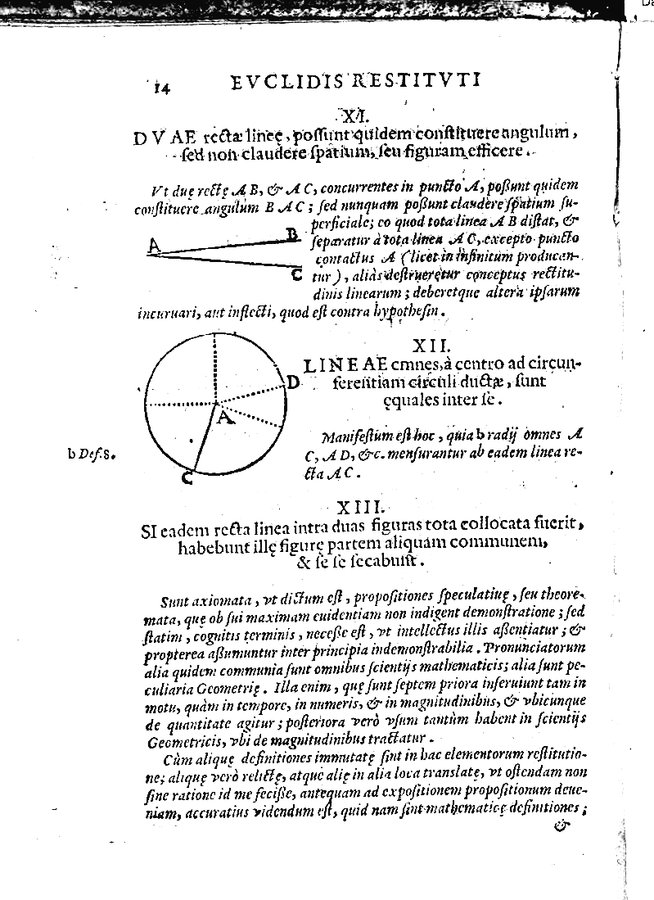 14 EVCLIDIS RESTITVTI
XI.
DVAE rectæ lineę, possunt quidem constituere angulum,
sed non claudere spatium, seu figuram efficere.
Vt duę rectę A B, & A C, concurrentes in puncto A, possunt quidem
constituere angulum B A C; sed nunquam possunt claudere spatium su-
perficiale; eo quod tota linea A B distat, &
separatur à tota linea A C, excepto puncto
contactus A (licet in infinitum producan-
tur), aliàs destrueretur conceptus rectitu-
dinis linearum; deberetque altera ipsarum
incuruari, aut inflecti, quod est contra hypothesin.
A
B
C
XII.
LINEAE omnes, à centro ad circun-
ferentiam circuli ductæ, sunt
ęquales inter se.
Manifestum est hoc, quia b radij omnes A
C, A D, &c. mensurantur ab eadem linea re-
cta A C.
b Def. 8.
D
A
C
XIII.
SI eadem recta linea intra duas figuras tota collocata fuerit,
habebunt illę figurę partem aliquam communem,
& se se secabunt.
Sunt axiomata, vt dictum est, propositiones speculatiuę, seu theore-
mata, quę ob sui maximam euidentiam non indigent demonstratione; sed
statim, cognitis terminis, necesse est, vt intellectus illis assentiatur; &
propterea assumuntur inter principia indemonstrabilia. Pronunciatorum
alia quidem communia sunt omnibus scientijs mathematicis; alia sunt pe-
culiaria Geometrię. Illa enim, quę sunt septem priora inseruiunt tam in
motu, quàm in tempore, in numeris, & in magnitudinibus, & vbicunque
de quantitate agitur; posteriora verò vsum tantùm habent in scientijs
Geometricis, vbi de magnitudinibus tractatur.
Cùm aliquę definitiones immutatę sint in hac elementorum restitutio-
ne; aliquę verò relictę, atque alię in alia loca translatę, vt ostendam non
sine ratione id me fecisse, antequam ad expositionem propositionum deue-
niam, accuratius videndum est, quid nam sint mathematicę definitiones;
&